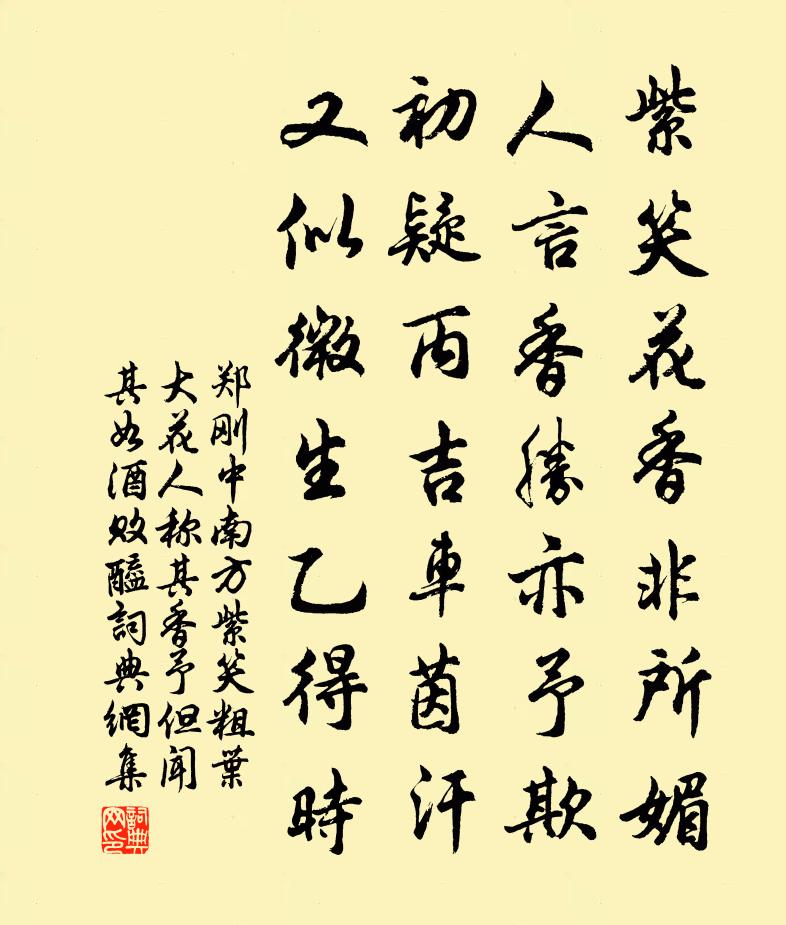 紫笑花香非所媚
人言香勝亦予欺
初疑丙吉車茵汗
又似微生乙得時
郑刚中南方紫笑粗葉
大花人称其香予但闻
其如酒败醯詞典網集
詞典
网印